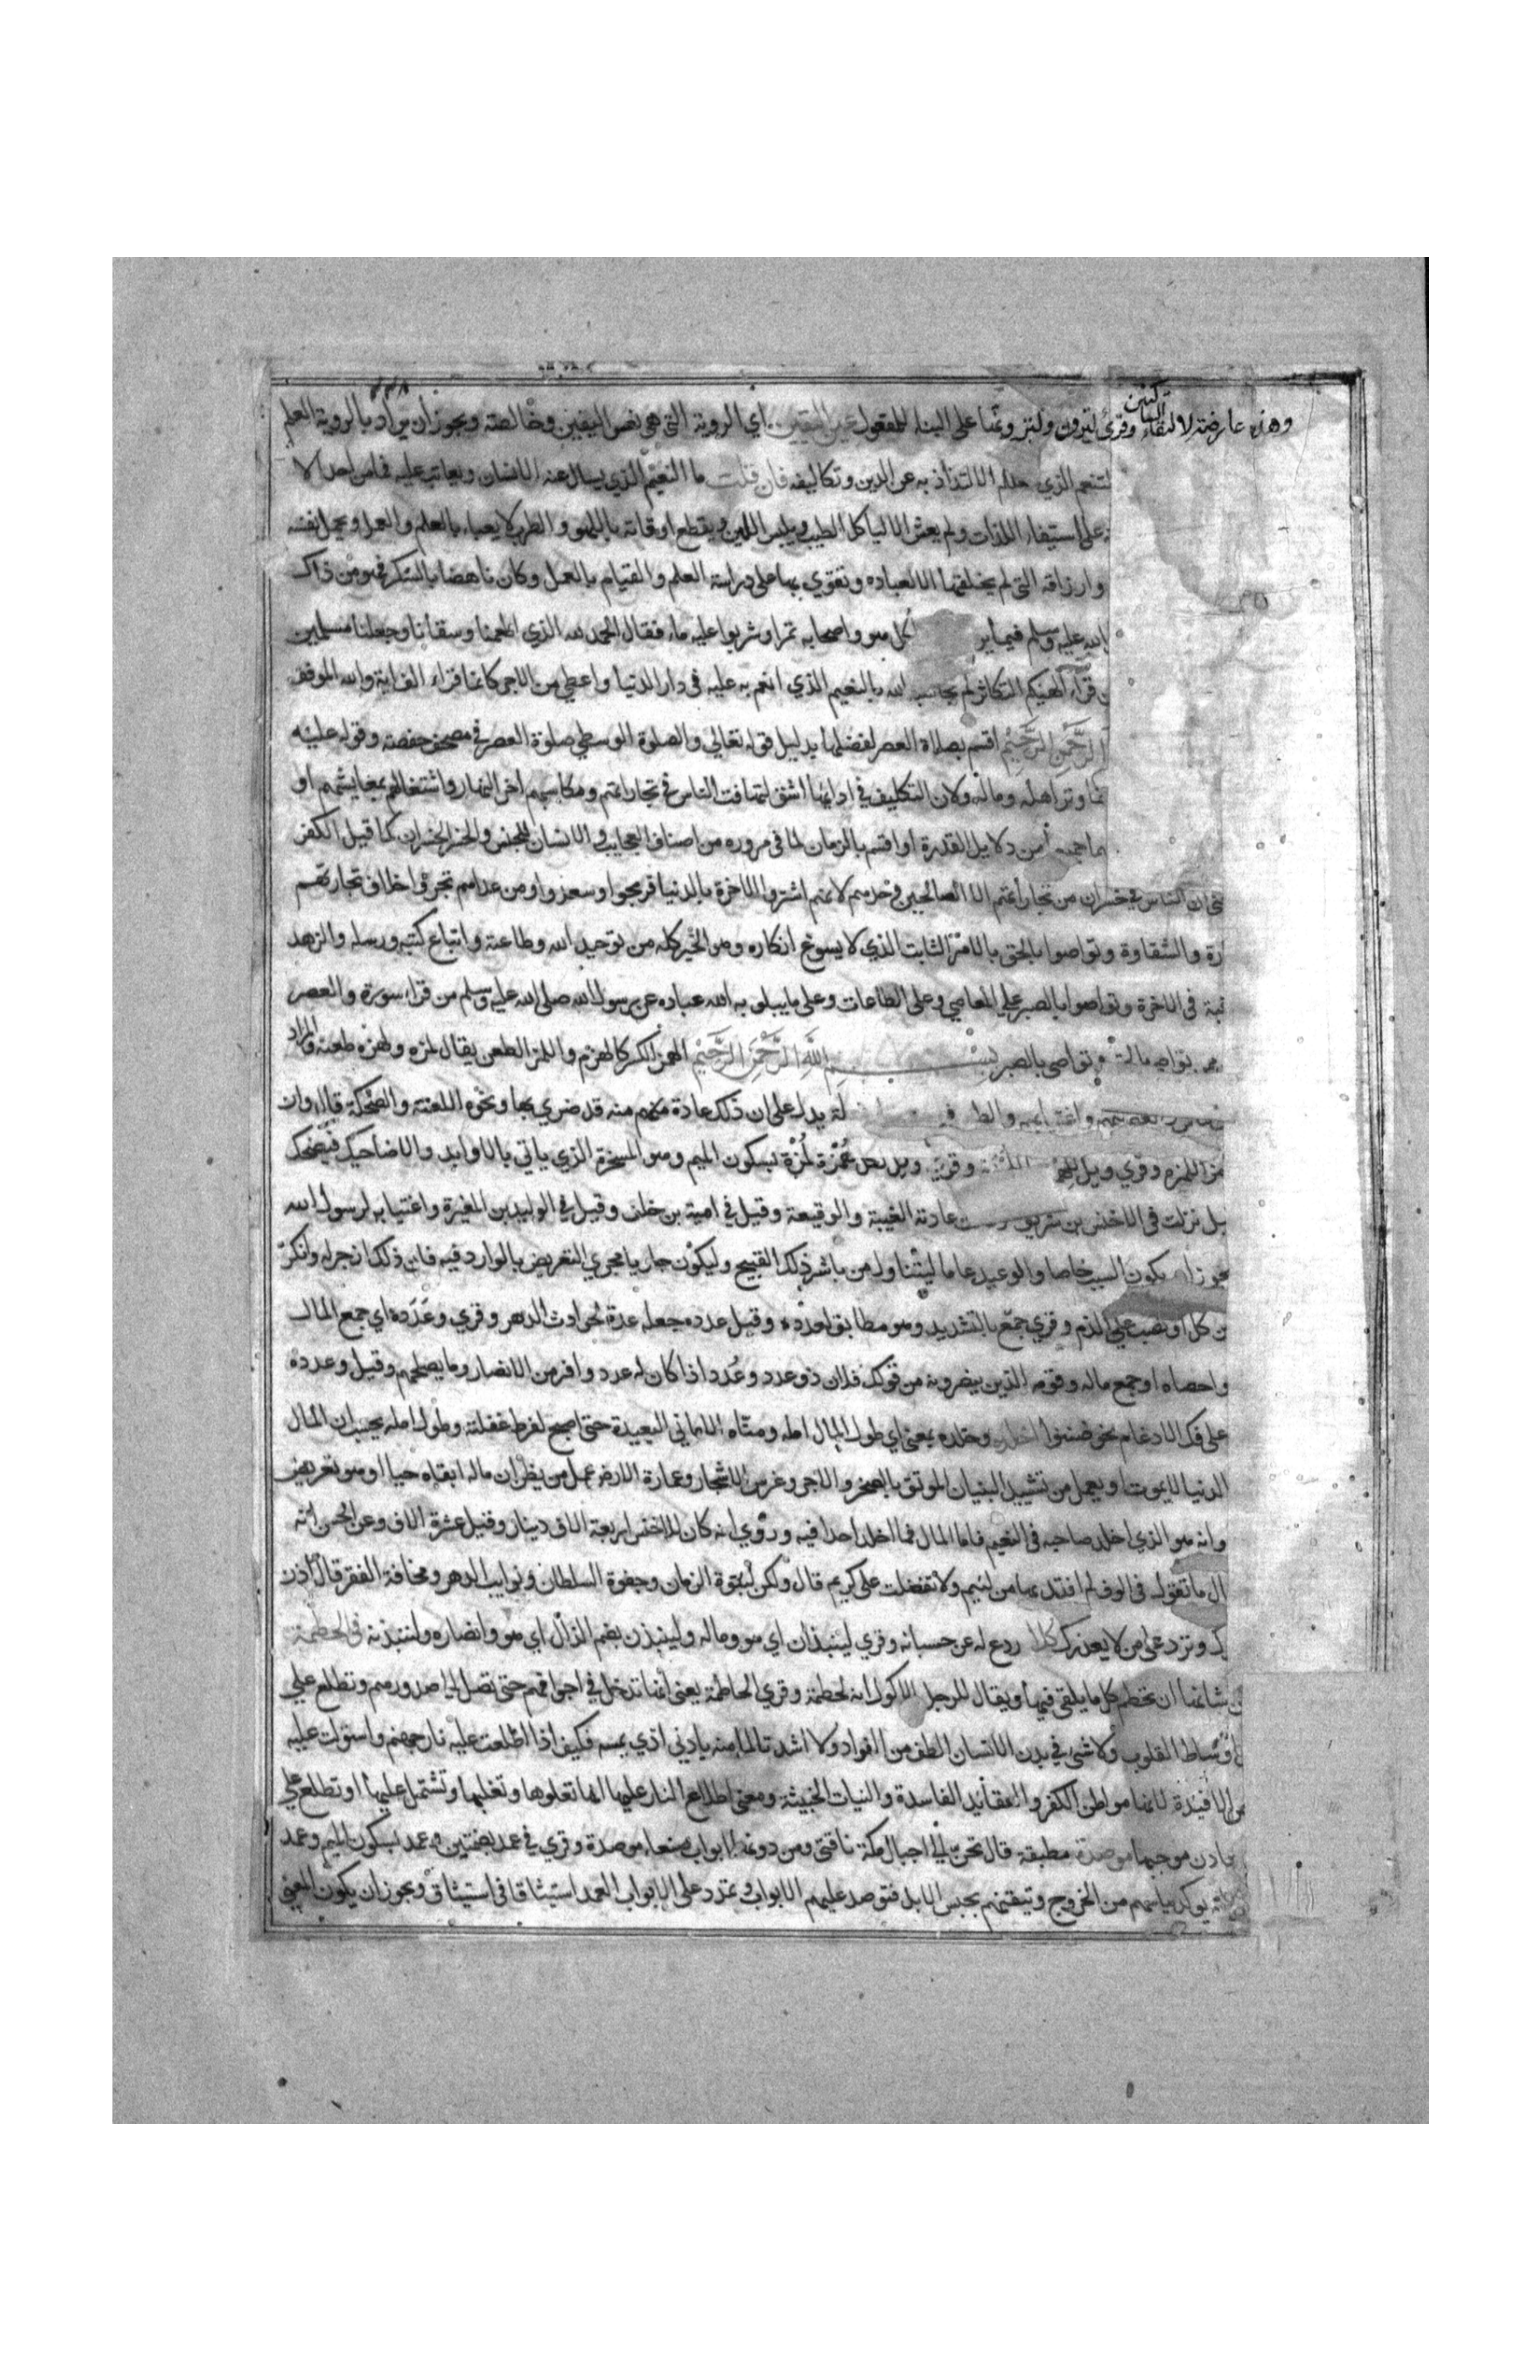 وهذه عارضة لالتقاء الساكنين وقرئ لترون ولترونها على البناء للمفعول عين اليقين اي الروية التي هي نفس اليقين وخالصته ويجوز أن يراد بالروية العلم
التنعم الذي الالتذاذ به عن الدين وتكاليفه فان قلت ما النعيم الذي يسال عنه الانسان ويعاتب عليه فما من احد الا
على استيفاء اللذات ولم يعش الا لياكل الطيب ويلبس اللين ويقطع اوقاته باللهو والطرب لا يعباء بالعلم والعمل ويحمل نفسه
وارزاقه التي لم يخلقها الا لعباده وتقوي بها على دراسة العلم والقيام بالعمل وكان ناهضا بالشكر فهو من ذاك
الله عليه وسلم فيما ير اكل هو واصحابه تمرا وشربوا عليه ماء فقال الحمد لله الذي اطعمنا وسقانا وجعلنا مسلمين
قراء الهيكم التكاثر لم يحاسبه الله بالنعيم الذي انعم به عليه في دار الدنيا واعطي من الاجر كانما قراء الف اية والله الموفق
الرَّحْمَنِ الرَّحِيْمِ اقسم بصلاة العصر لفضلها بدليل قوله تعالي والصلوة الوسطي صلوة العصر في مصحف حفصة وقوله عليه
وتر اهله وماله ولان التكليف في ادايها اشق لتهافت الناس في تجاراتهم ومكاسبهم اخر النهار واشتغالهم بمعايشهم او
من دلايل القدرة او اقسم بالزمان لما في مروره من اصناف العجايب والانسان للجنس والخسر الخسران كما قيل الكفر
ان الناس في خسران من تجاراتهم الا الصالحين وحدهم لانهم اشتروا الاخرة بالدنيا فربحوا وسعدوا ومن عداهم تجروا خلاف تجارتهم
والشقاوة وتواصوا بالحق بالامر الثابت الذي لا يسوغ انكاره وهو الخير كله من توحيد الله وطاعته واتباع كتبه ورسله والزهد
في الاخرة وتواصوا بالصبر على المعاصي وعلى الطاعات وعلى ما يبلو به الله عباده عن رسول الله صلى الله عليه وسلم من قراء سورة والعصر
وتواصي بالصبر بِسْمِ اللَّهِ الرَّحْمَنِ الرَّحِيْمِ الهمز الكسر كالهزم واللمز الطعن يقال لمزه ولهزه طعنه والمراد
واغتيابهم والطـ يدل على ان ذلك عادة منهم منه قد ضري بها ونحوهما اللعنة والضحكة قال وان
اللمزه وقري ويل وقري ويل لكل هُمْزة لُمْزة بسكون الميم وهو المسخرة الذي ياتي بالاوابد والاضاحيك فيضحك
نزلت في الاخنس بن شريق عادته الغيبة والوقيعة وقيل في امية بن خلف وقيل في الوليد بن المغيرة واغتيابه لرسول الله
يكون السبب خاصا والوعيد عاما ليتناول من باشر ذلك القبيح وليكون جاريا مجري التعريض بالوارد فيه فان ذلك ازجر له وانكي
من كل او نصب على الذم وقري جمّع بالتشديد وهو مطابق لعدده وقيل عدده جعله عدة لحوادث الدهر وقري وعَدَدَه اي جمع المال
واحصاه او جمع ماله وقومه الذين ينصرونه من قولك فلان ذو عدد وعُدد اذا كان له عدد وافر من الانصار وما يصلحهم وقيل وعدده
على فك الادغام نحو ضننوا اخلده وخلده بمعني اي طول المال امله ومنّاه الاماني البعيدة حتى اصبح لفرط غفلته وطول امله يحسب ان المال
الدنيا لا يموت او يعمل من تشييد البنيان الموثق بالصخر والاجر وغرس الاشجار وعمارة الارض عمل من يظن ان ماله ابقاه حيا او هو تعريض
وانه هو الذي اخلد صاحبه في النعيم فاما المال فما اخلد احدا فيه وروي انه كان للاخنس اربعة الاف دينار وقيل عشرة الاف وعن الحسن انه
ما تقول في الوف لم افتد بها من لئيم ولا تفضلت على كريم قال ولكن لنبوة الزمان وجفوة السلطان ونوايب الدهر ومخافة الفقر قال اذن
وترد على من لا يعذرك كلا ردع له عن حسبانه وقري لينبذان اي هو وماله ولينبذن بضم الذال اي هو وانصاره ولننبذنه في الحطمة
شانها ان تحطم كل ما يلقي فيها ويقال للرجل الاكول انه لحطمة وقري الحاطمة يعني انها تدخل في اجوافهم حتى تصل الى صدورهم وتطلع على
اوساط القلوب ولا شئ في بدن الانسان الطف من الفواد ولا اشد تالما منه بادني اذي يمسه فكيف اذا اطلعت عليه نار جهنم واستولت عليه
الافيدة لانها مواطن الكفر والعقايد الفاسدة والنيات الخبيثة ومعني اطلاع النار عليها انها تعلوها وتغلبها وتشتمل عليها او تطلع على
موجبها موصدة مطبقة قال تحنّ الى اجبال مكة ناقتي ومن دونها ابواب صنعاء موصدة وقري في عمد بضمتين وعمد بسكون الميم وعمد
يوكد ياسهم من الخروج وتيقنهم بحبس الابد فتوصد عليهم الابواب وتمدد على الابواب العمد استيثاقا في استيثاق ويجوز ان يكون المعني